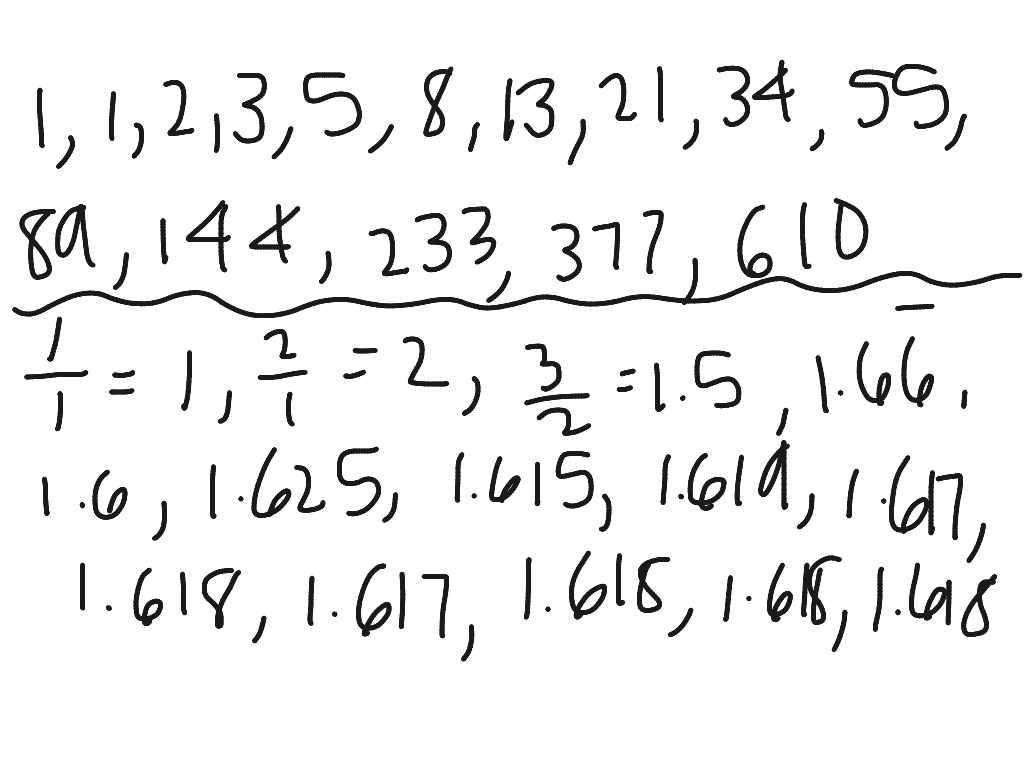 1, 1, 2, 3, 5, 8, 13, 21, 34, 55,
89, 144, 233, 377, 610
1/1 = 1, 2/1 = 2, 3/2 = 1.5, 1.66̅,
1.6, 1.625, 1.615, 1.619, 1.617,
1.618, 1.617, 1.618, 1.618, 1.618